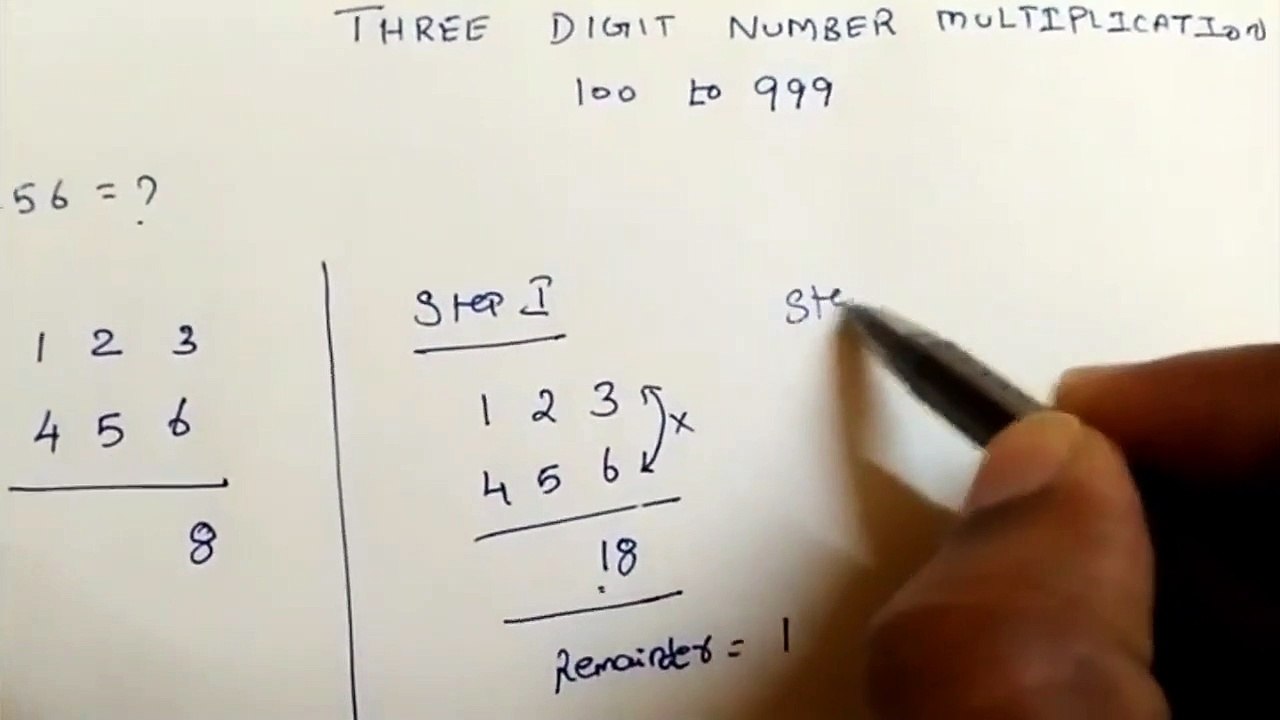 THREE DIGIT NUMBER MULTIPLICATION
100 to 999
56 = ?
1 2 3
4 5 6
8
Step I
1 2 3
4 5 6
x
18
Remainder = 1
Ste